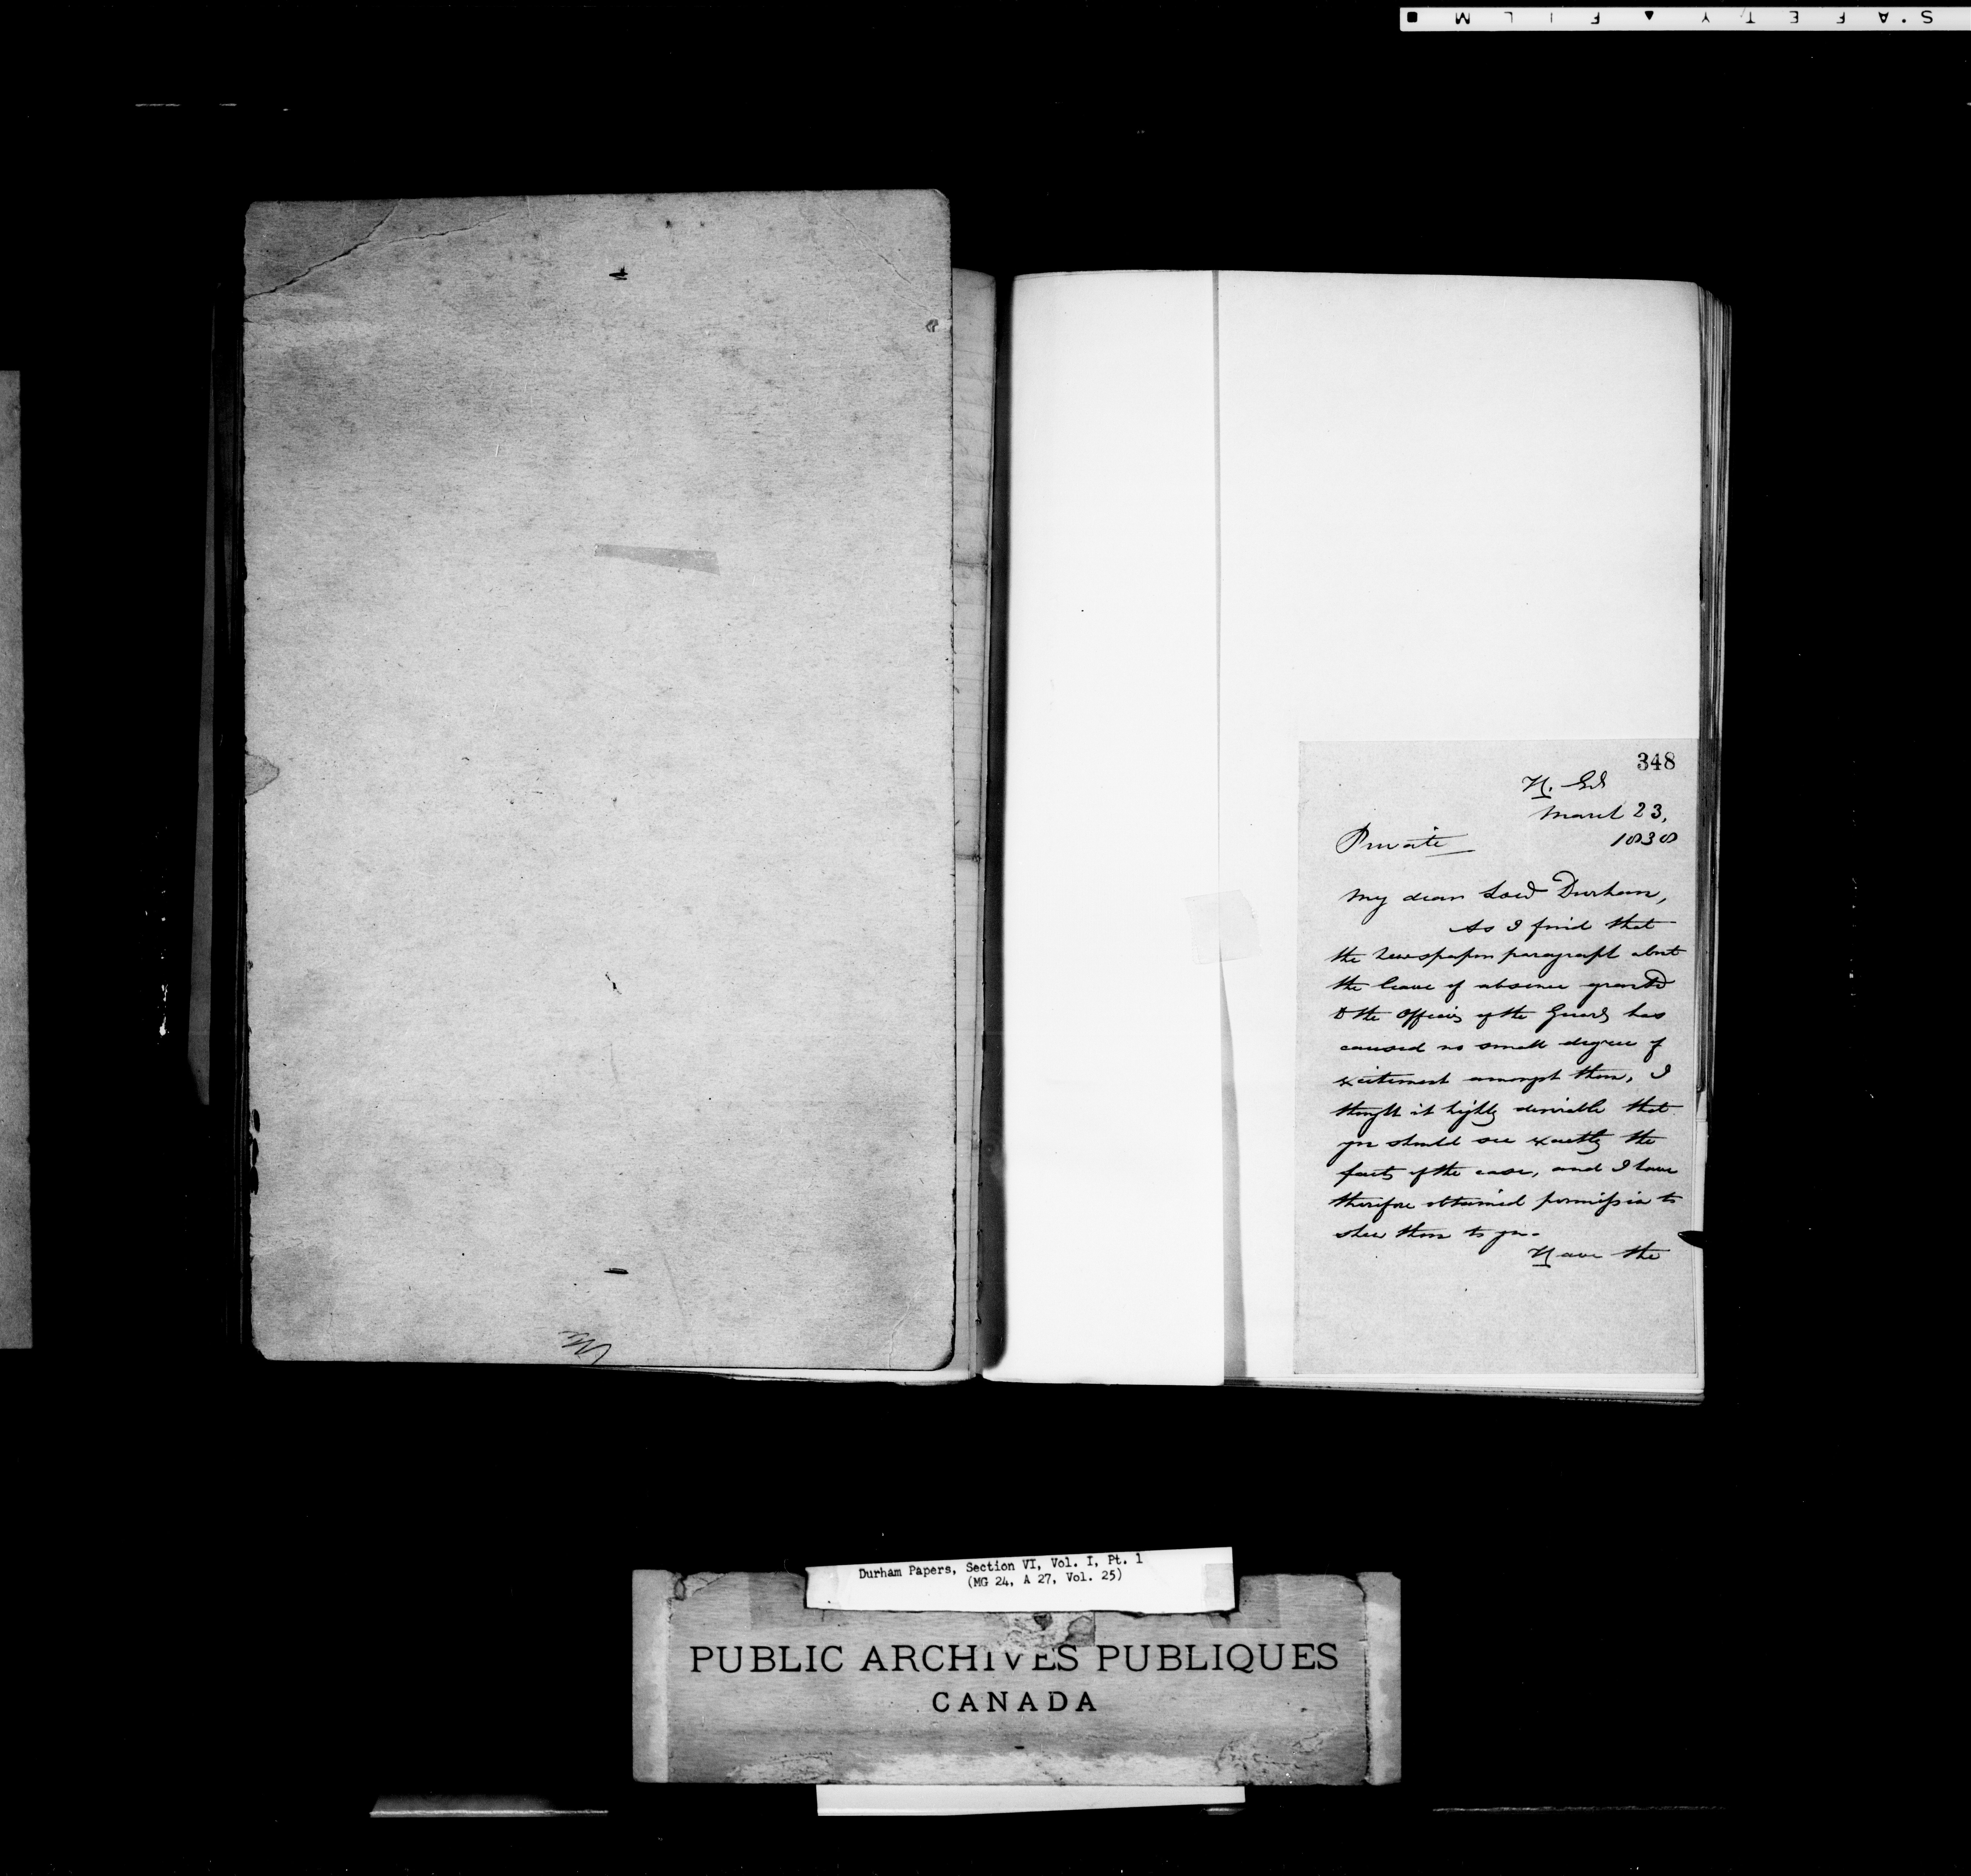 SAFETY FILM
348
H. Gds
March 23,
1838
Private
My dear Lord Durham,
As I find that
the Newspaper paragraph about
the leave of absence granted
to the Officers of the Guards has
caused no small degree of
excitement amongst them, I
thought it highly desirable that
you should see exactly the
facts of the case, and I have
therefore obtained permission to
shew them to you.
Have the
Durham Papers, Section VI, Vol. I, Pt. 1
(MG 24, A 27, Vol. 25)
PUBLIC ARCHIVES PUBLIQUES
CANADA